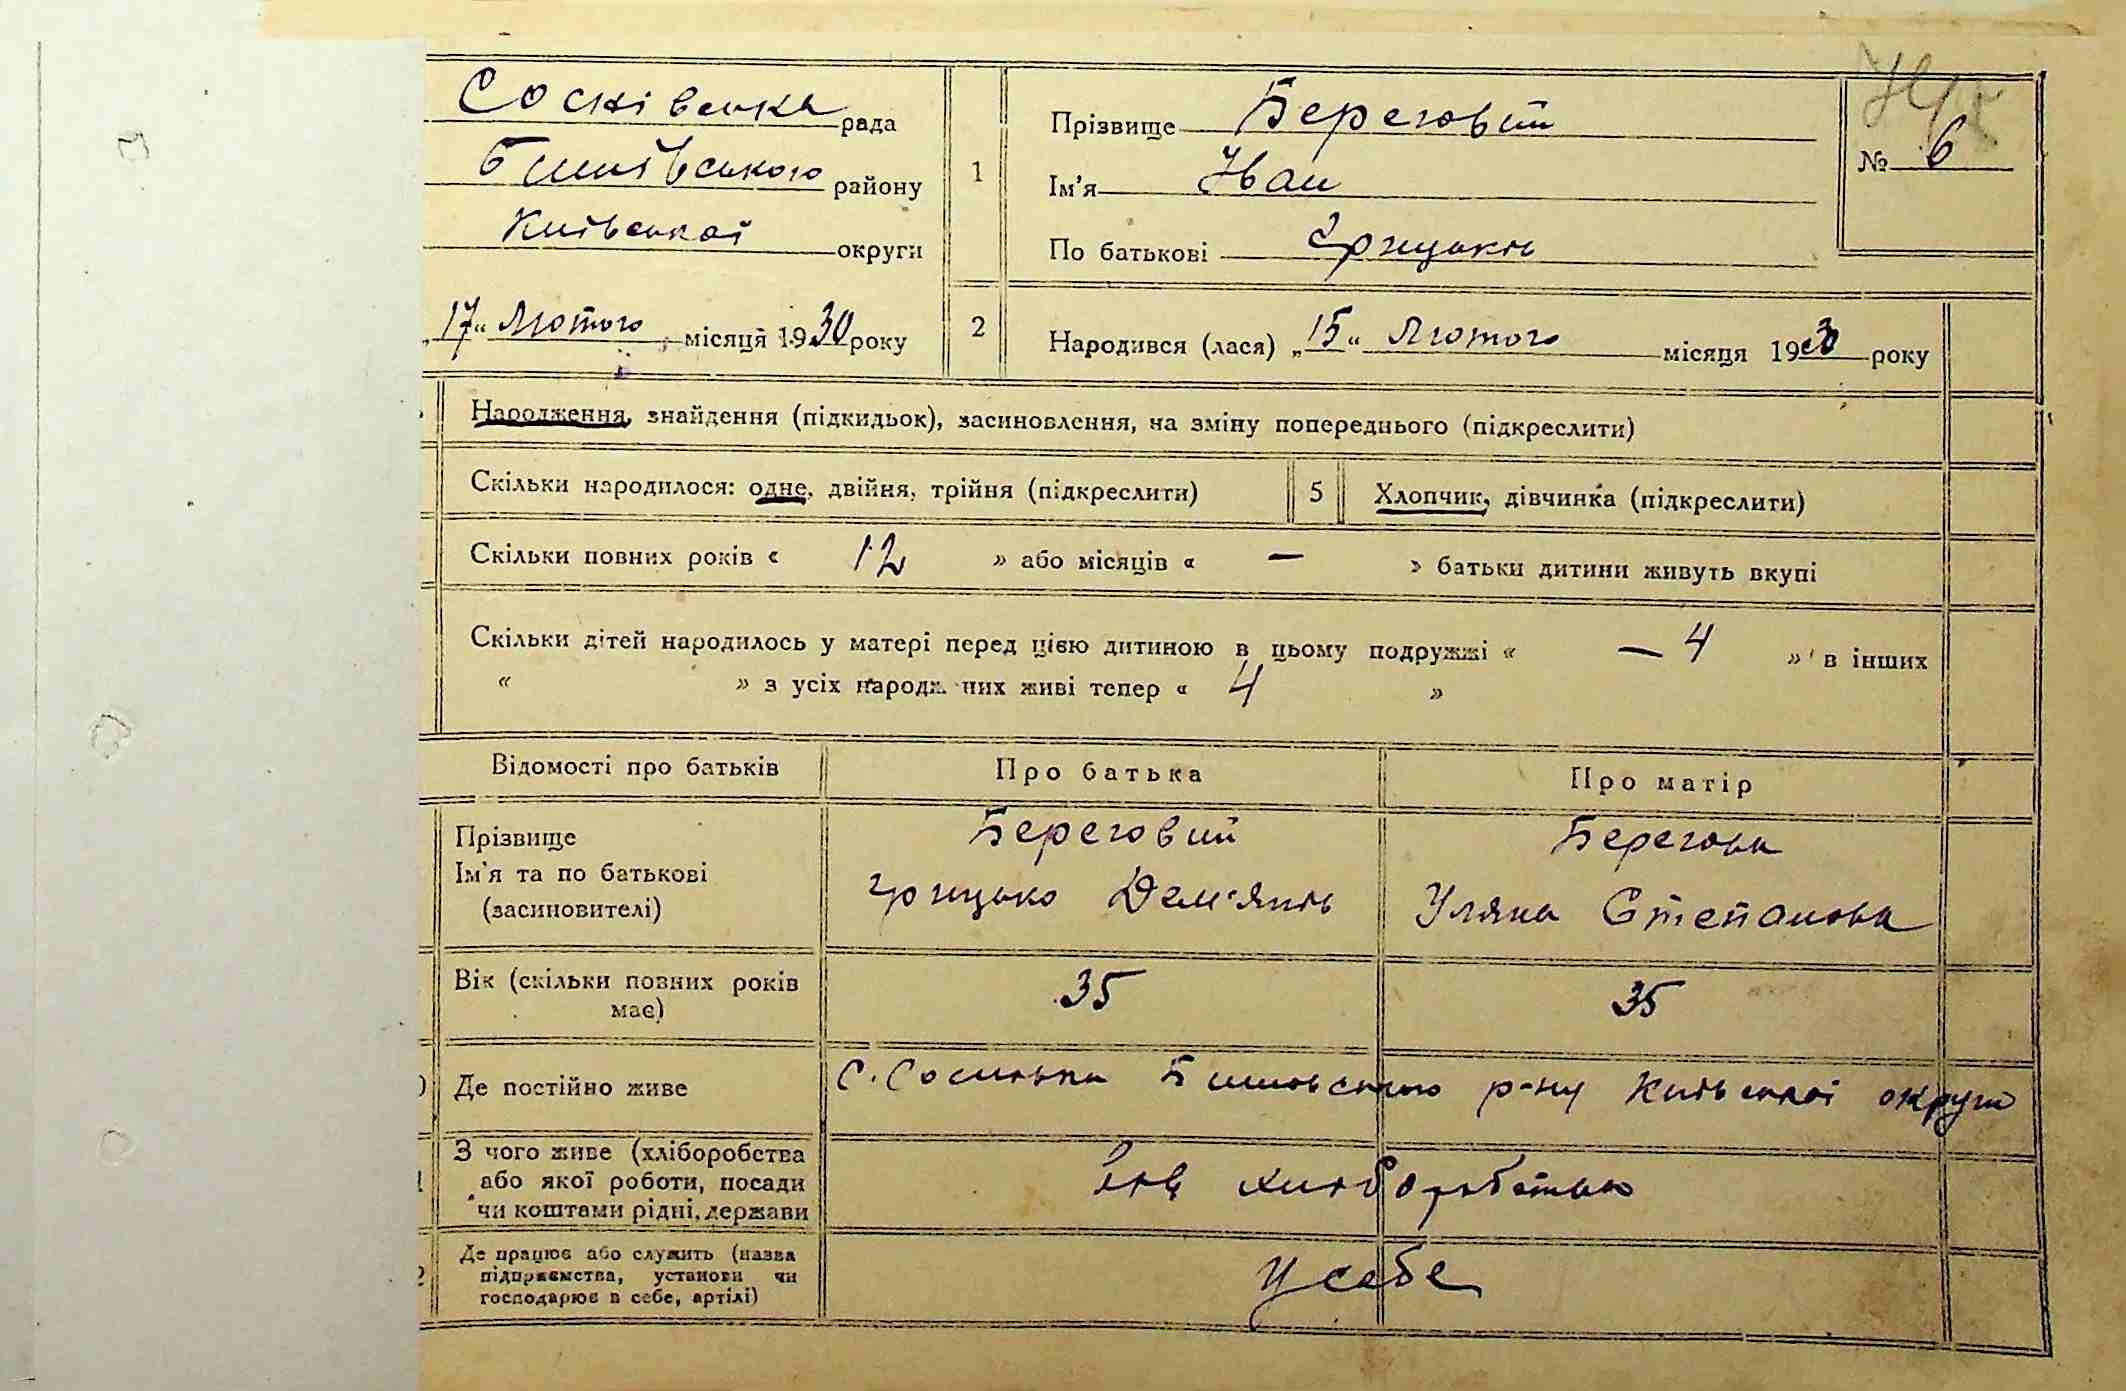 Соснівська рада
Бишівського району
Київської округи
„17“ Лютого місяця 1930 року
1
Прізвище Береговий
Ім’я Іван
По батькові Грицьків
№ 6
2
Народився (лася) „15“ Лютого місяця 1930 року
Народження, знайдення (підкидьок), засиновлення, на зміну попереднього (підкреслити)
Скільки народилося: одне, двійня, трійня (підкреслити)
5
Хлопчик, дівчинка (підкреслити)
Скільки повних років « 12 » або місяців « — » батьки дитини живуть вкупі
Скільки дітей народилось у матері перед цією дитиною в цьому подружжі « — 4 » в інших
« » з усіх народж них живі тепер « 4 »
Відомості про батьків
Про батька
Про матір
Прізвище
Ім’я та по батькові
(засиновителі)
Береговий
Грицько Дем’янів
Берегова
Уляна Степанова
Вік (скільки повних років
має)
35
35
Де постійно живе
С. Соснівка Бишівського р-ну Київської округи
З чого живе (хліборобства
або якої роботи, посади
чи коштами рідні, держави
хліборобством
Де працює або служить (назва
підприємства, установи чи
господарює в себе, артілі)
У себе